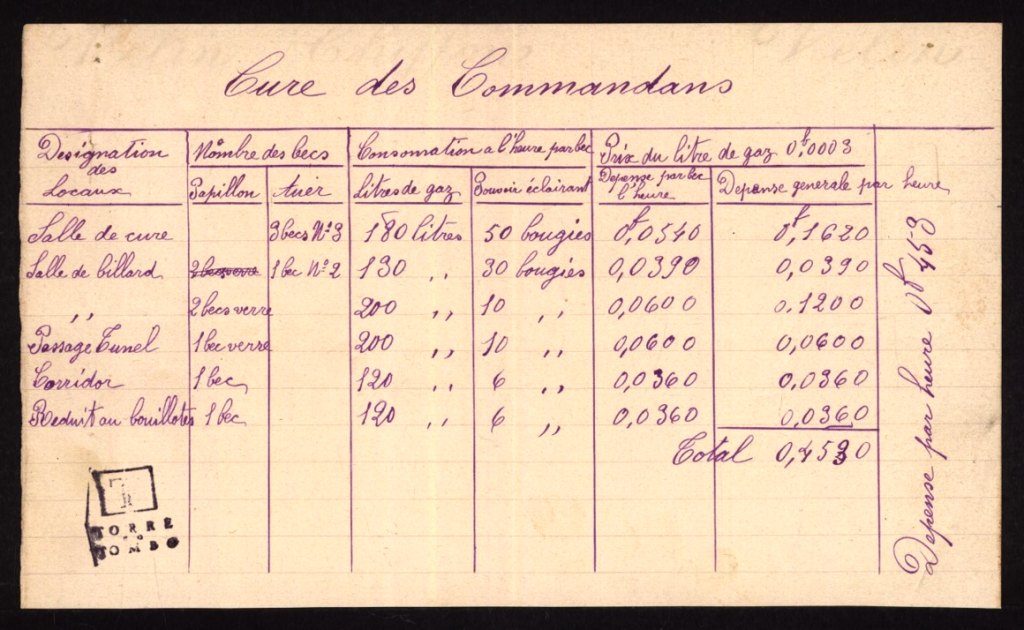 Cure des Commandans
Désignation des Locaux | Nombre des becs | Consomation a l'heure par bec | Prix du litre de gaz 0f,0003
Papillon | Auer | Litres de gaz | Pouvoir éclairant | Depense par bec l'heure | Depense generale par heure
Salle de cure | 3 becs Nº 3 | 180 litres | 50 bougies | 0f,0540 | 0f,1620
Salle de billard | 1 bec Nº 2 | 130 ,, | 30 bougies | 0,0390 | 0,0390
,, | 2 becs verre | 200 ,, | 10 ,, | 0,0600 | 0.1200
Passage Tunel | 1 bec verre | 200 ,, | 10 ,, | 0,0600 | 0,0600
Corridor | 1 bec | 120 ,, | 6 ,, | 0,0360 | 0,0360
Reduit au bouillotes | 1 bec | 120 ,, | 6 ,, | 0,0360 | 0,0360
Total 0,4530
Depense par heure 0f 453
TORRE
DO
TOMBO